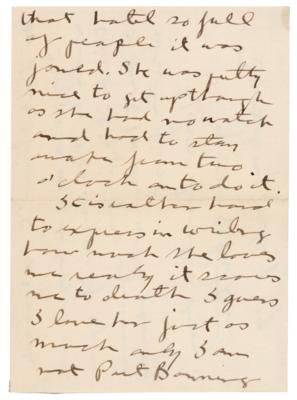 that hotel so full
of people it was
joined. She was pretty
nice to get up though
as she had no watch
and had to stay
awake from two
o'clock on to do it.
It is rather hard
to express in writing
how much she loves
me really it scares
me to death I guess
I love her just as
much only I am
not